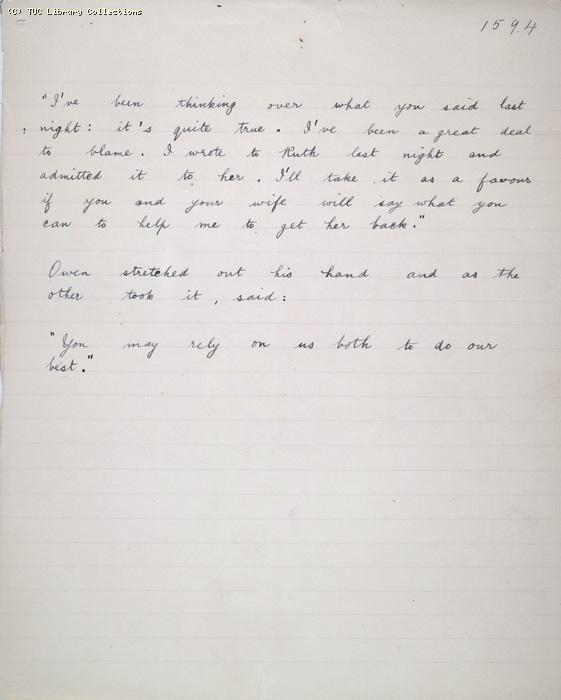 (C) TUC Library Collections
1594
"I've been thinking over what you said last
night: it's quite true. I've been a great deal
to blame. I wrote to Ruth last night and
admitted it to her. I'll take it as a favour
if you and your wife will say what you
can to help me to get her back."
Owen stretched out his hand and as the
other took it, said:
"You may rely on us both to do our
best."